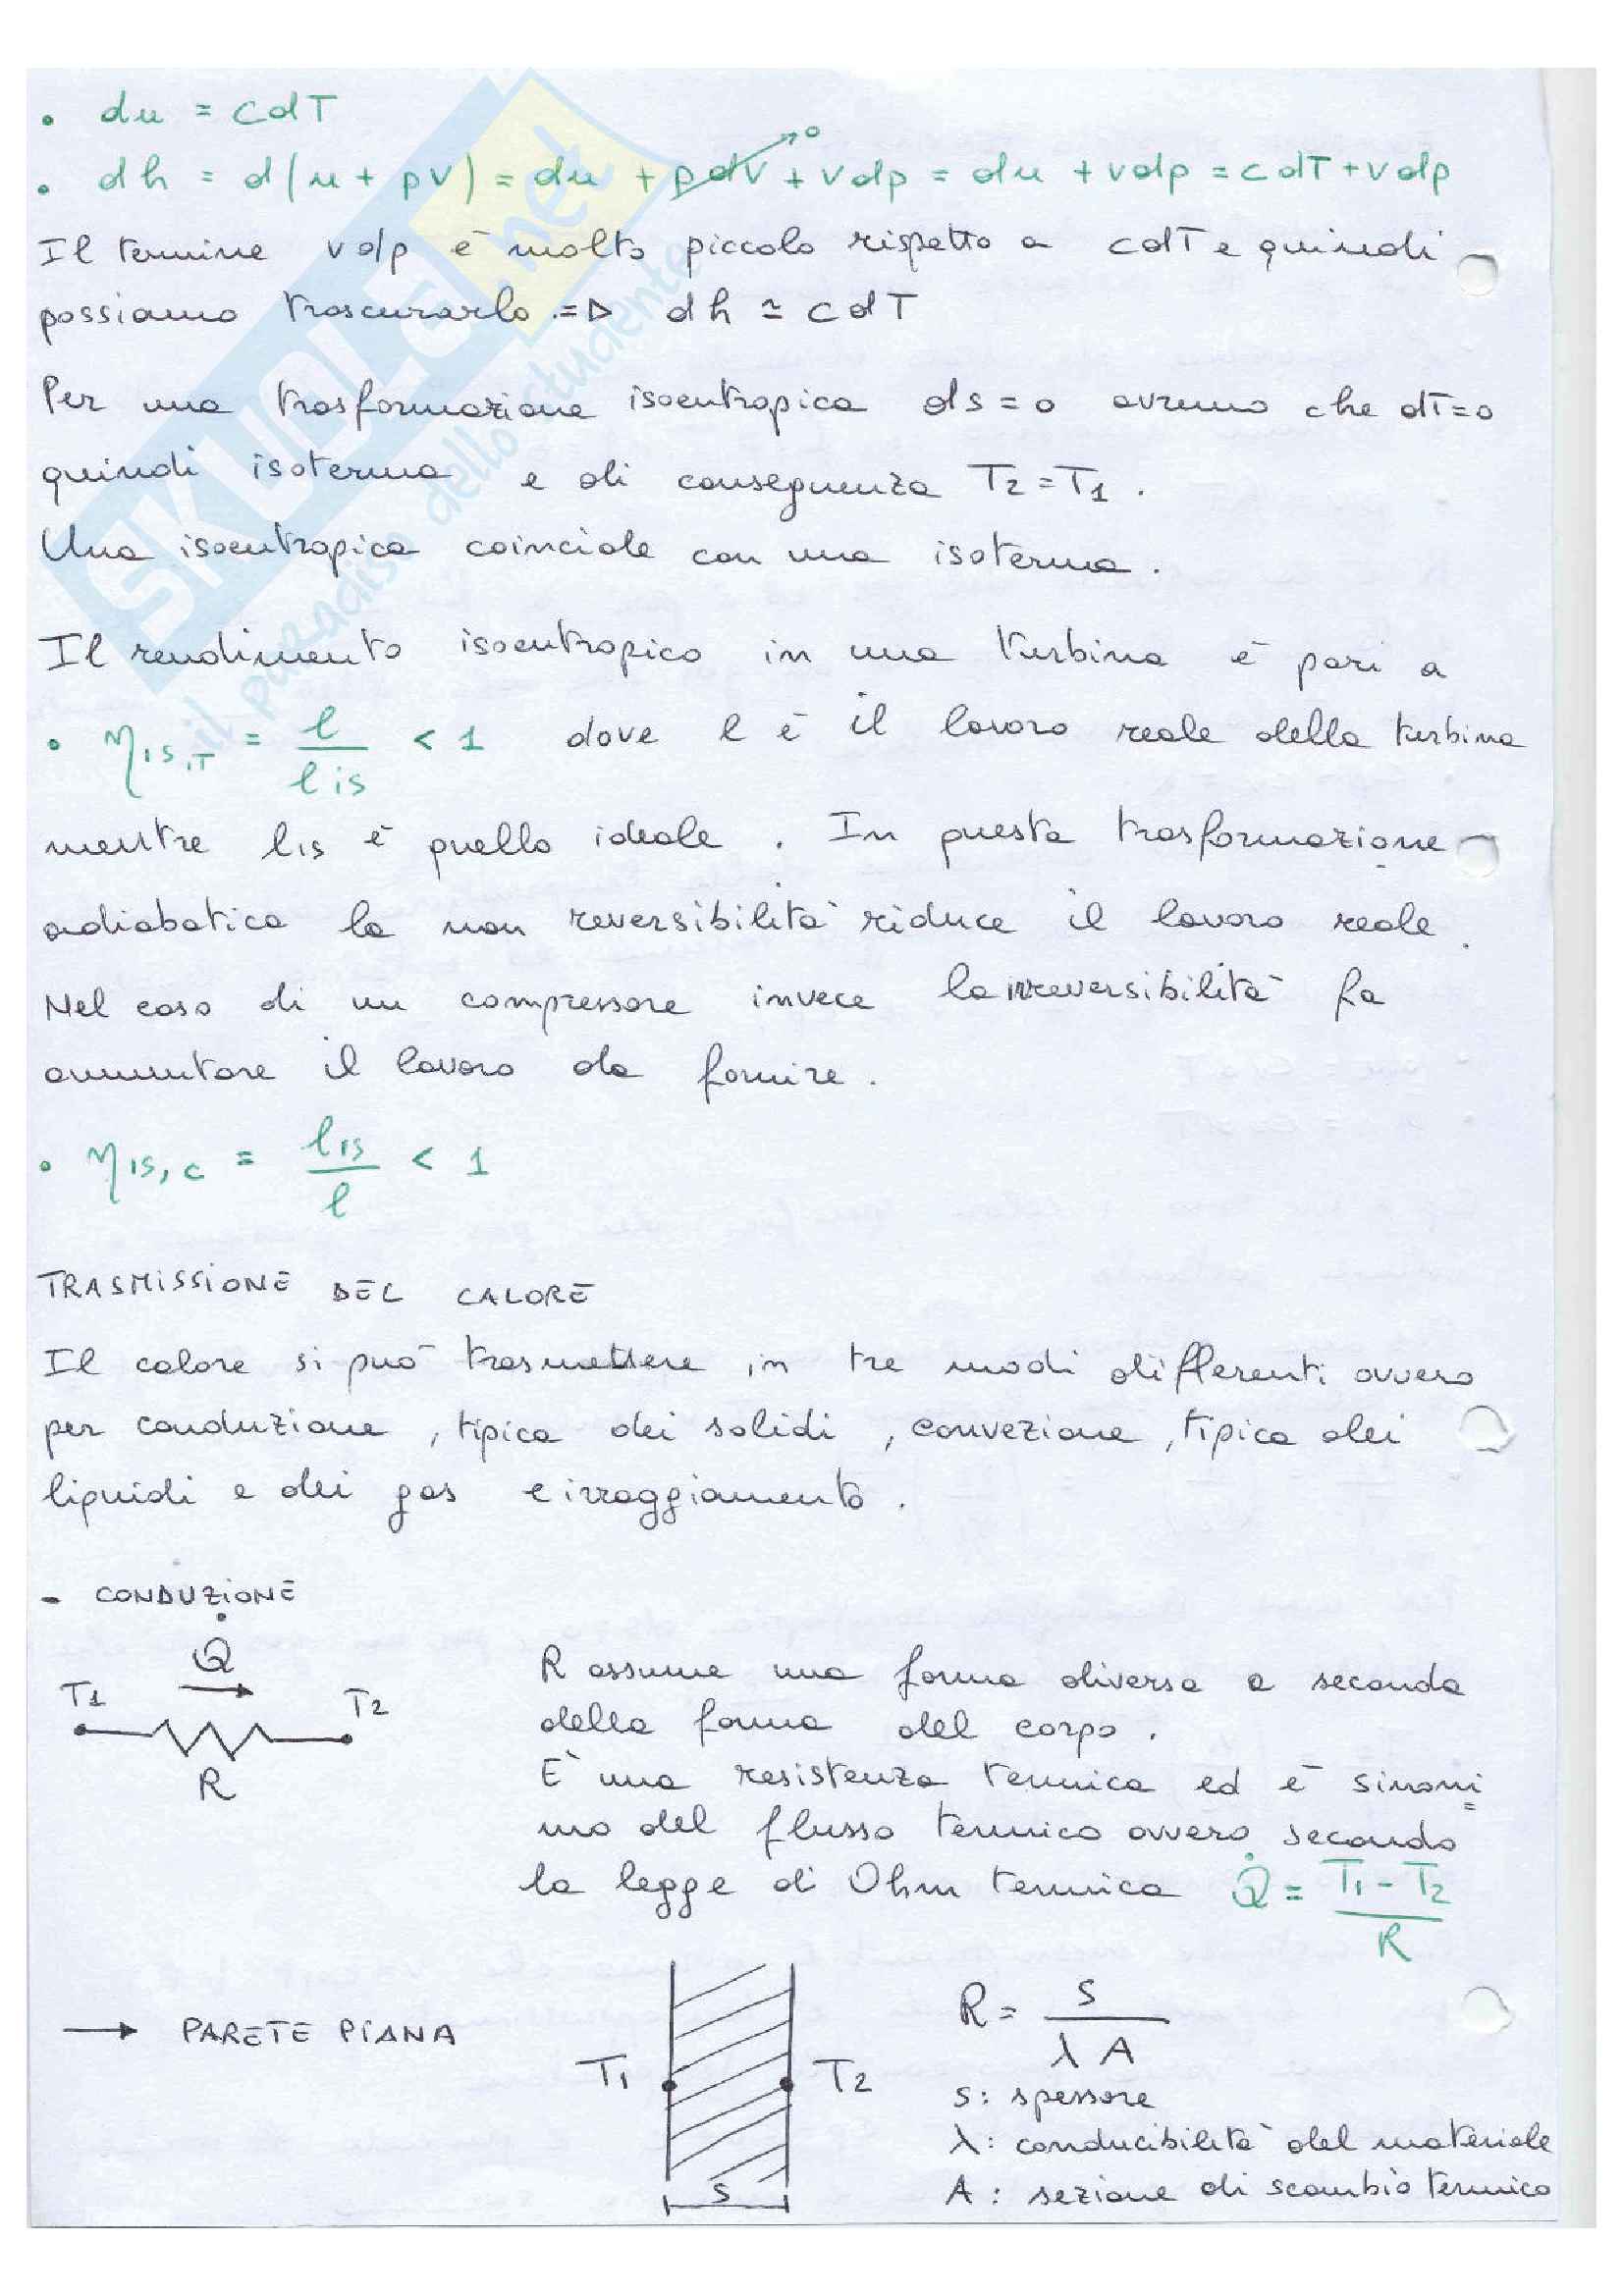 • du = cdT
• dh = d(u + pv) = du + pdv + vdp = du + vdp = cdT + vdp
0
Il termine vdp è molto piccolo rispetto a cdT e quindi
possiamo trascurarlo => dh ≃ cdT
Per una trasformazione isoentropica ds=0 avremo che dT=0
quindi isoterma e di conseguenza T2=T1.
Una isoentropica coincide con una isoterma.
Il rendimento isoentropico in una turbina è pari a
• ηis,T = l / lis < 1 dove l è il lavoro reale della turbina
mentre lis è quello ideale. In questa trasformazione
adiabatica la non reversibilità riduce il lavoro reale.
Nel caso di un compressore invece la irreversibilità fa
aumentare il lavoro da fornire.
• ηis,c = lis / l < 1
TRASMISSIONE DEL CALORE
Il calore si può trasmettere in tre modi differenti ovvero
per conduzione, tipica dei solidi, convezione, tipica dei
liquidi e dei gas e irraggiamento.
- CONDUZIONE
Q̇
T1 T2
R
R assume una forma diversa a seconda
della forma del corpo.
È una resistenza termica ed è sinoni=
mo del flusso termico ovvero secondo
la legge di Ohm termica Q̇ = T1 - T2 / R
→ PARETE PIANA
T1 T2
s
R = s / λ A
s: spessore
λ: conducibilità del materiale
A: sezione di scambio termico
SKUOLA.net
il paradiso dello studente